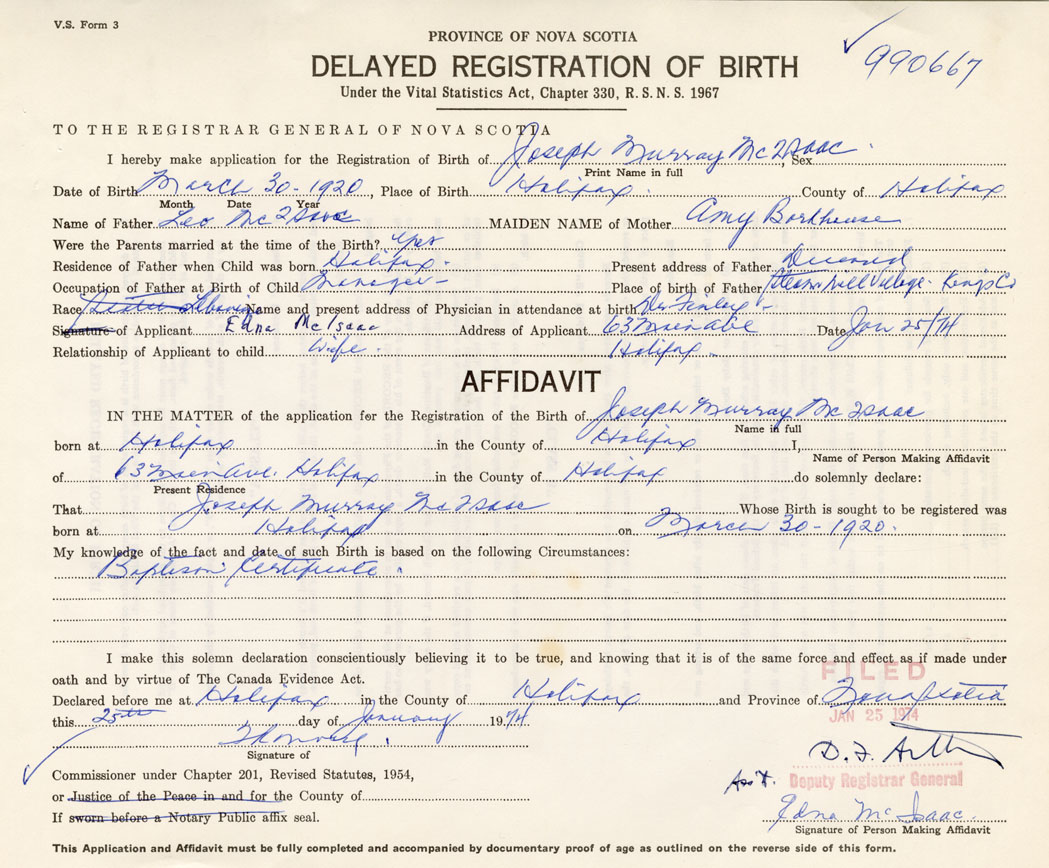 V.S. Form 3
PROVINCE OF NOVA SCOTIA
990667
DELAYED REGISTRATION OF BIRTH
Under the Vital Statistics Act, Chapter 330, R.S.N.S. 1967
TO THE REGISTRAR GENERAL OF NOVA SCOTIA
I hereby make application for the Registration of Birth of Joseph Murray McIsaac, Sex
Print Name in full
Date of Birth March 30-1920, Place of Birth Halifax. County of Halifax
Month Date Year
Name of Father Leo McIsaac MAIDEN NAME of Mother Amy Borkhouse
Were the Parents married at the time of the Birth? Yes
Residence of Father when Child was born Halifax. Present address of Father Deceased
Occupation of Father at Birth of Child Manager- Place of Birth of Father Steam Mill Village. Kings Co
Race Name and present address of Physician in attendance at birth Dr Finlay-
Signature of Applicant Edna McIsaac Address of Applicant 63 Main Ave Date Jan 25/74
Relationship of Applicant to child Wife. Halifax.
AFFIDAVIT
IN THE MATTER of the application for the Registration of the Birth of Joseph Murray McIsaac
Name in full
born at Halifax in the County of Halifax I,
Name of Person Making Affidavit
of 63 Main Ave. Halifax in the County of Halifax do solemnly declare:
Present Residence
That Joseph Murray McIsaac Whose Birth is sought to be registered was
born at Halifax on March 30-1920.
My knowledge of the fact and date of such Birth is based on the following Circumstances:
Baptism Certificate.
I make this solemn declaration conscientiously believing it to be true, and knowing that it is of the same force and effect as if made under
oath and by virtue of The Canada Evidence Act.
FILED
Declared before me at Halifax in the County of Halifax and Province of Nova Scotia
this 25th day of January 1974
JAN 25 1974
Signature of
Commissioner under Chapter 201, Revised Statutes, 1954,
Ass't. Deputy Registrar General
or Justice of the Peace in and for the County of
If sworn before a Notary Public affix seal.
Edna McIsaac.
Signature of Person Making Affidavit
This Application and Affidavit must be fully completed and accompanied by documentary proof of age as outlined on the reverse side of this form.